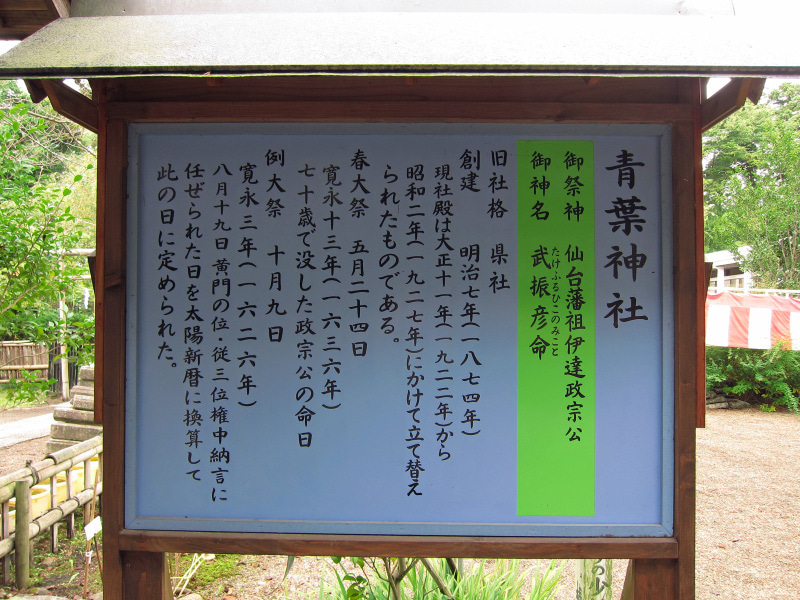 青葉神社
御祭神 仙台藩祖伊達政宗公
御神名 武振彦命
たけふるひこのみこと
旧社格 県社
創建 明治七年(一八七四年)
現社殿は大正十一年(一九二二年)から
昭和二年(一九二七年)にかけて立て替え
られたものである。
春大祭 五月二十四日
寛永十三年(一六三六年)
七十歳で没した政宗公の命日
例大祭 十月九日
寛永三年(一六二六年)
八月十九日黄門の位・従三位権中納言に
任ぜられた日を太陽新暦に換算して
此の日に定められた。